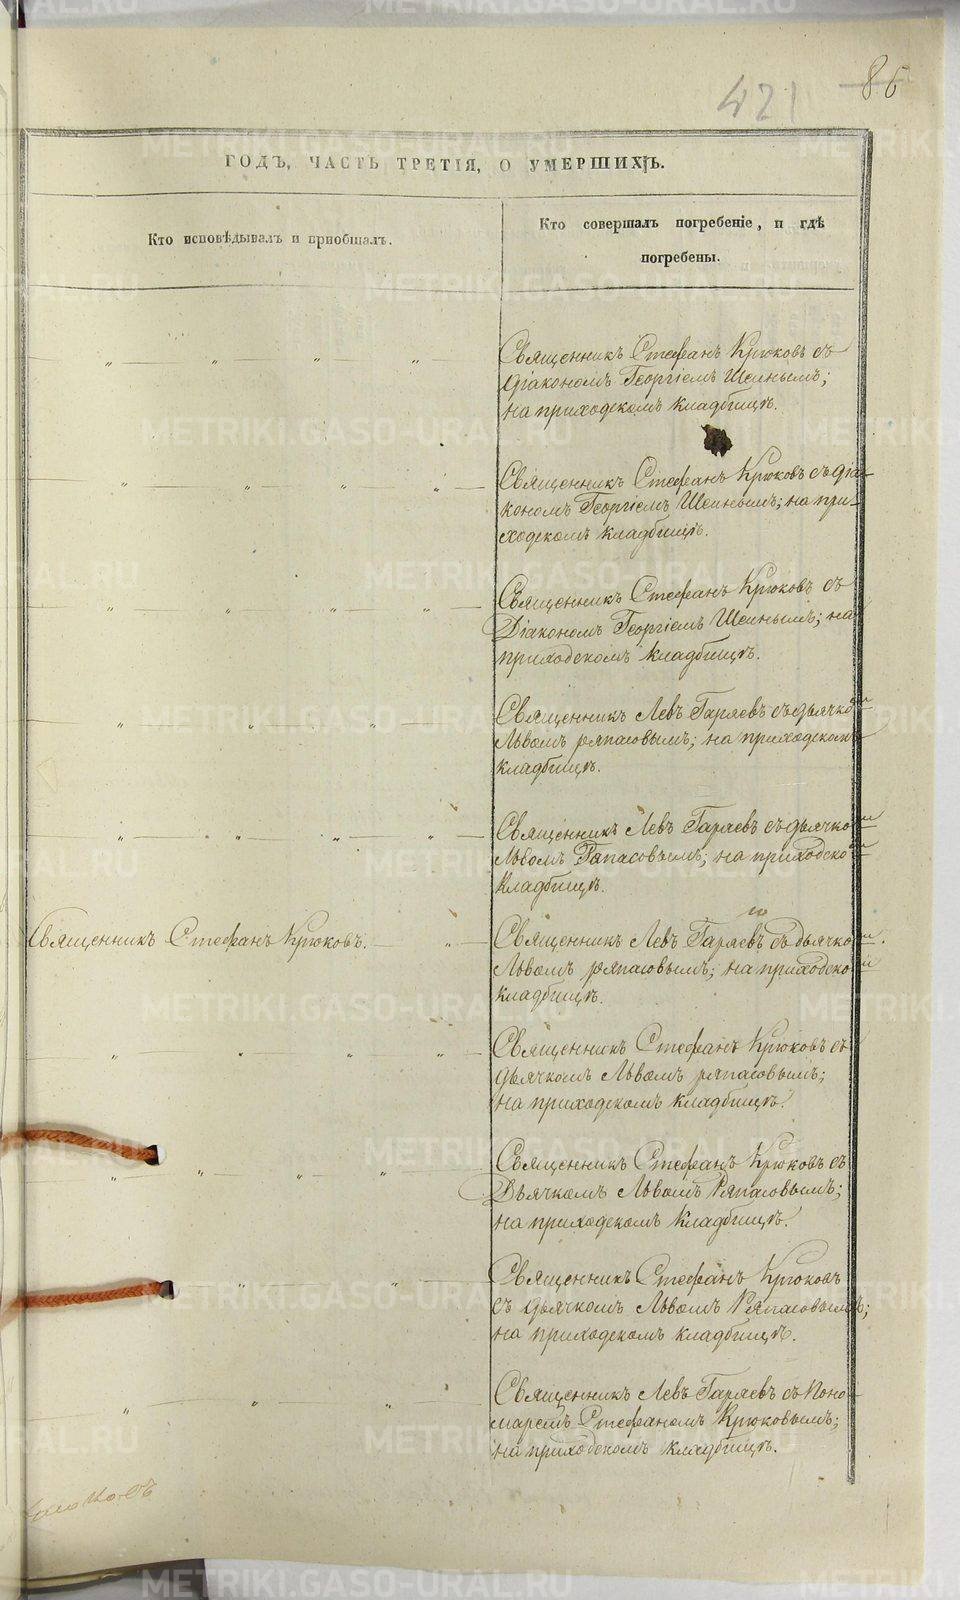 421 86
ГОДЪ, ЧАСТЬ ТРЕТІЯ, О УМЕРШИХЪ.
Кто исповѣдывалъ и пріобщалъ.
Кто совершалъ погребеніе, и гдѣ
погребены.
Священникъ Стефанъ Крюковъ съ
діакономъ Георгіемъ Шеинымъ;
на приходскомъ кладбищѣ.
Священникъ Стефанъ Крюковъ съ діа-
кономъ Георгіемъ Шеинымъ; на при-
ходскомъ кладбищѣ.
Священникъ Стефанъ Крюковъ съ
Діакономъ Георгіемъ Шеинымъ; на
приходскомъ кладбищѣ.
Священникъ Левъ Гаряевъ съ дьячкомъ
Львомъ Ряпасовымъ; на приходскомъ
кладбищѣ.
Священникъ Левъ Гаряевъ съ дьячкомъ
Львомъ Ряпасовымъ; на приходскомъ
кладбищѣ.
Священникъ Стефанъ Крюковъ.
Священникъ Левъ Гаряевъ съ дьячкомъ
Львомъ Ряпасовымъ; на приходскомъ
кладбищѣ.
Священникъ Стефанъ Крюковъ съ
дьячкомъ Львомъ Ряпасовымъ;
на приходскомъ кладбищѣ.
Священникъ Стефанъ Крюковъ съ
Дьячкомъ Львомъ Ряпасовымъ;
на приходскомъ кладбищѣ.
Священникъ Стефанъ Крюковъ
съ дьячкомъ Львомъ Ряпасовымъ;
на приходскомъ кладбищѣ.
Священникъ Левъ Гаряевъ съ Поно-
маремъ Стефаномъ Крюковымъ;
на приходскомъ кладбищѣ.
METRIKI.GASO-URAL.RU